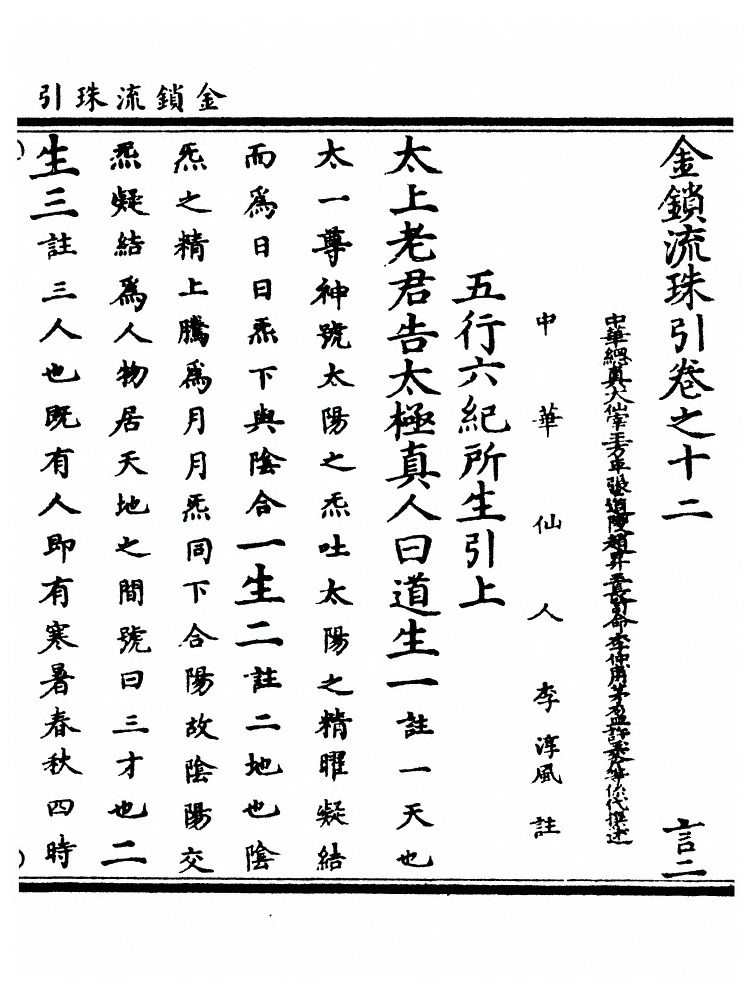 金鎖流珠引
金鎖流珠引卷之十二 言二
中華仙人李淳風註
五行六紀所生引上
太上老君告太極真人曰道生一註一天也
太一尊神號太陽之炁吐太陽之精曜凝結
而爲日日炁下與陰合一生二註二地也陰
炁之精上騰爲月月炁同下合陽故陰陽交
炁凝結爲人物居天地之間號曰三才也二
生三註三人也既有人即有寒暑春秋四時